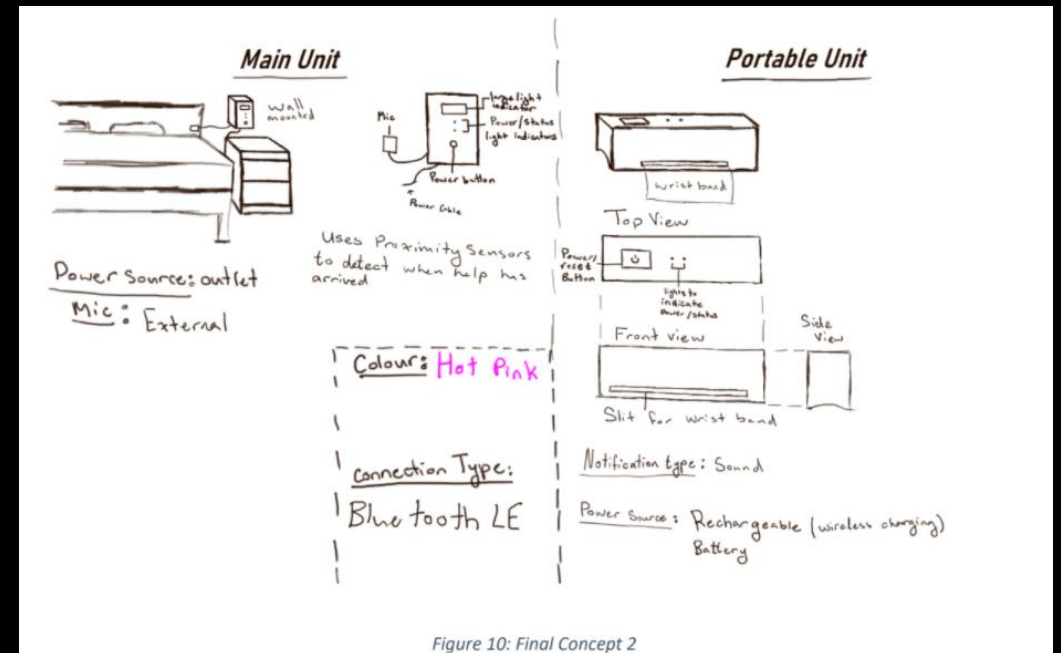 Main Unit
wall
mounted
Mic
large light
indicator
Power/status
light indicators
Power button
Power Cable
Uses Proximity Sensors
to detect when help has
arrived
Power Source: outlet
Mic: External
Colour: Hot Pink
Connection Type:
Bluetooth LE
Portable Unit
wrist band
Top View
Power/
reset
Button
lights to
indicate
Power/status
Front view
Side
View
Slit for wrist band
Notification type: Sound
Power Source: Rechargeable (wireless charging)
Battery
Figure 10: Final Concept 2